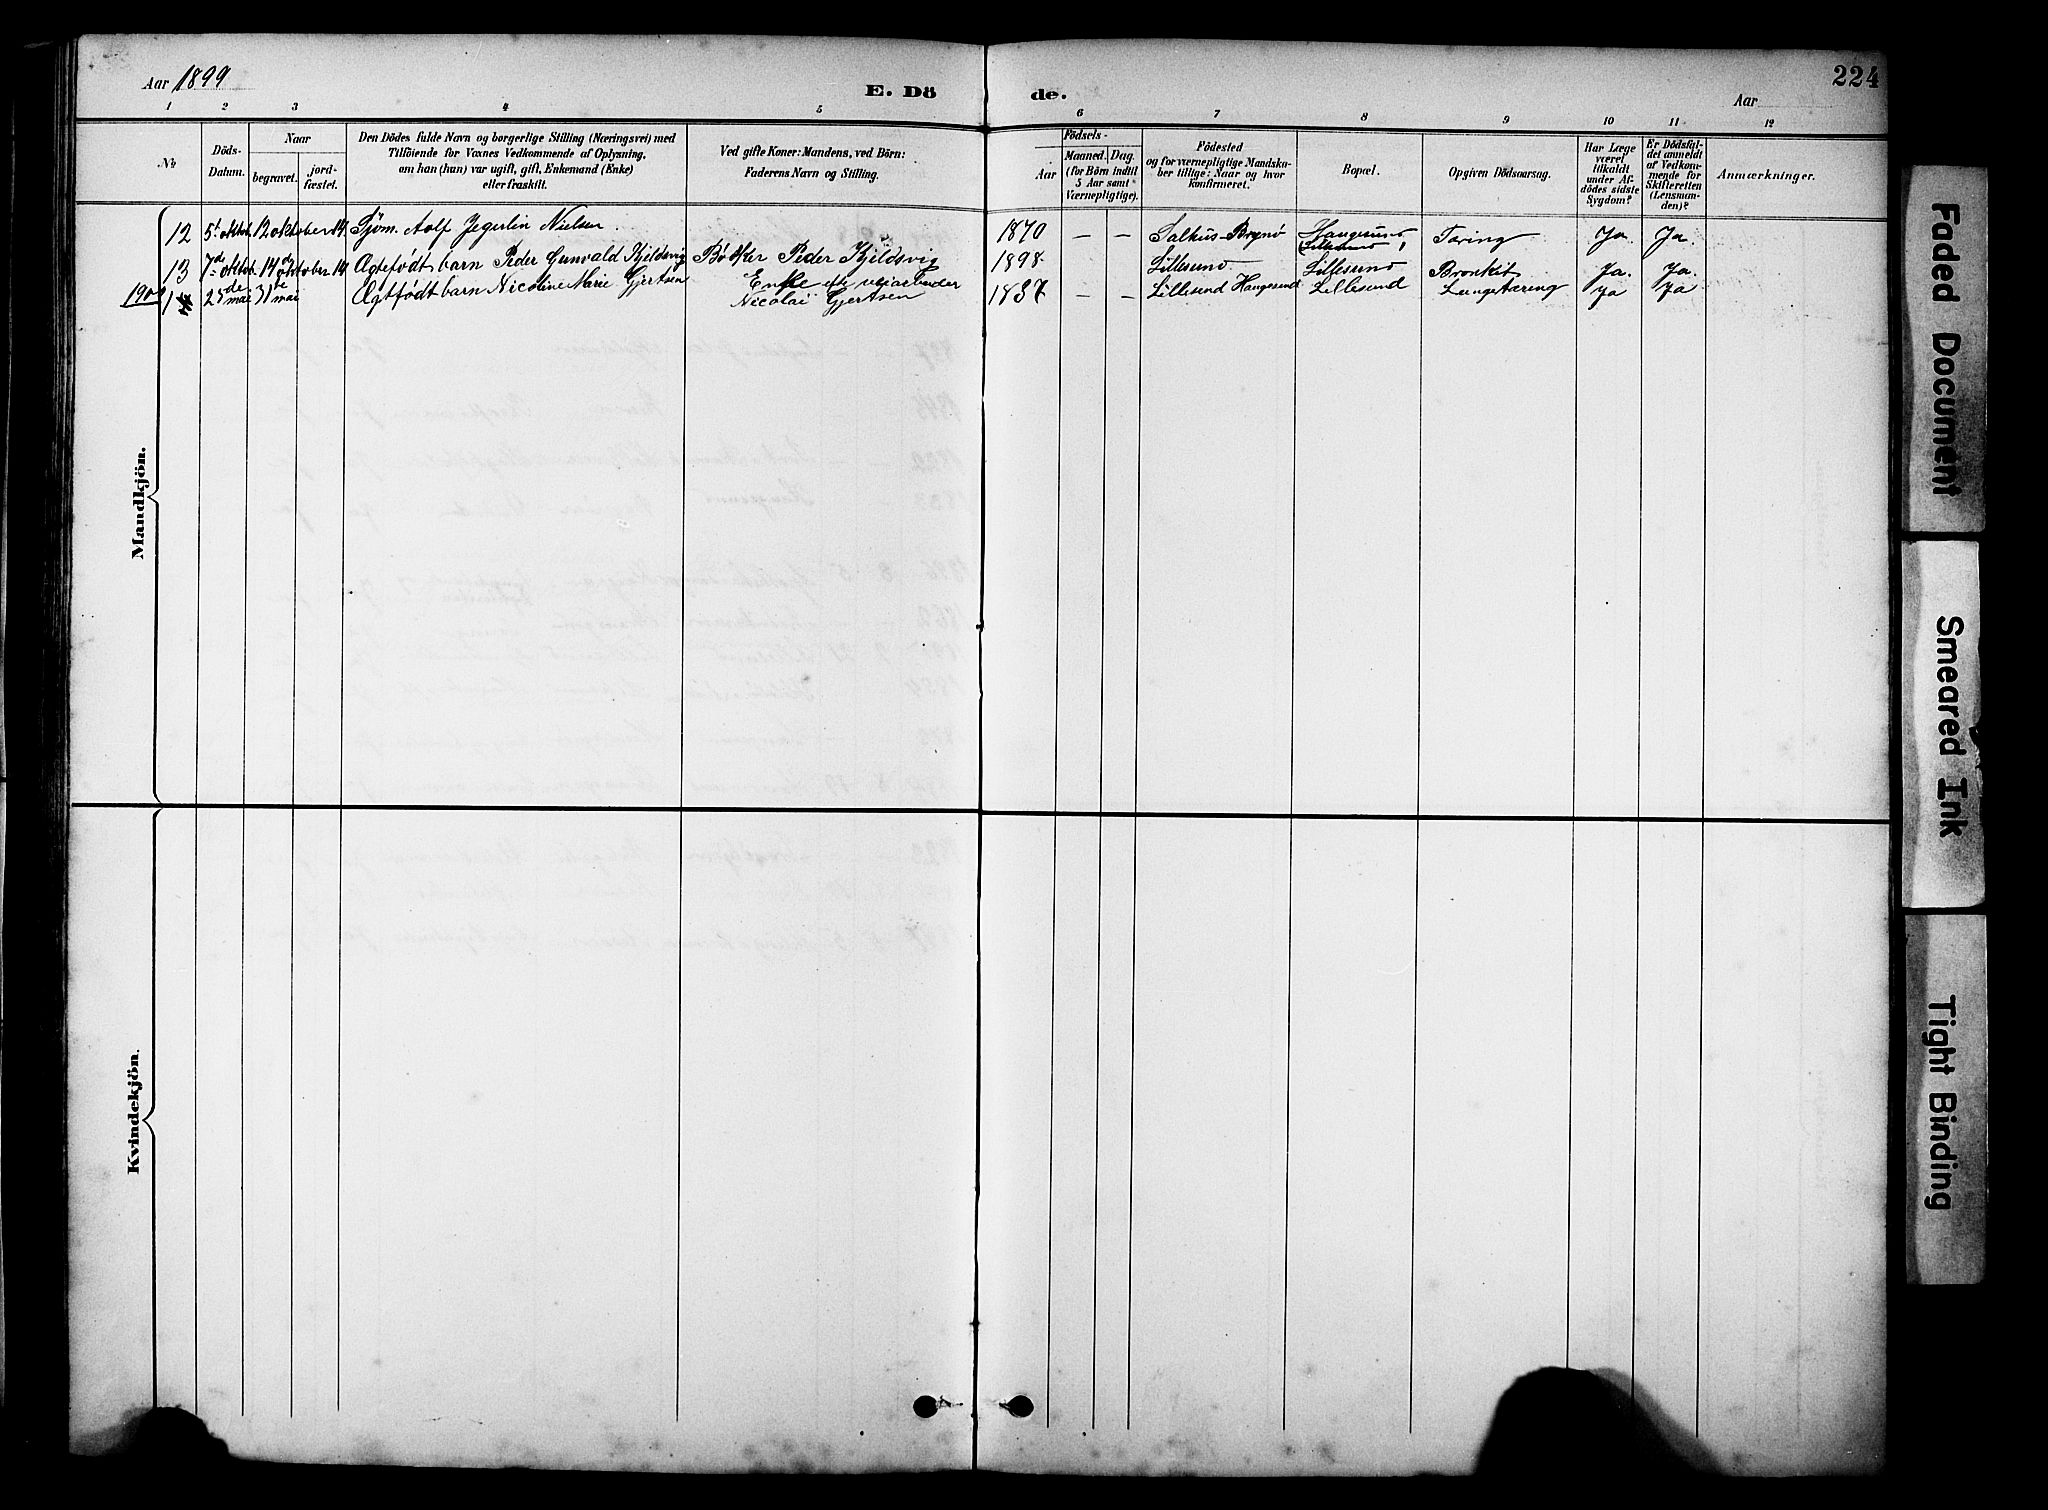 Aar 1899
E. Dö
de.
224
Aar
1 2 3 4 5 6 7 8 9 10 11 12
No
Döds-
Datum.
Naar
begravet.
jord-
fæstet.
Den Dödes fulde Navn og borgerlige Stilling (Næringsvei) med
Tilföiende for Voxnes Vedkommende af Oplysning,
om han (hun) var ugift, gift, Enkemand (Enke)
eller fraskilt.
Ved gifte Koner: Mandens, ved Börn:
Faderens Navn og Stilling.
Födsels-
Aar
Maaned. Dag.
(for Börn indtil
5 Aar samt
Værnepligtige).
Födested
og for værnepligtige Mandska-
ber tillige: Naar og hvor
konfirmeret.
Bopæl.
Opgiven Dödsaarsag.
Har Læge
været
tilkaldt
under Af-
dödes sidste
Sygdom?
Er Dödsfal-
det anmeldt
af Vedkom-
mende for
Skifteretten
(Lensman-
den)?
Anmærkninger.
12 5t oktob. 12 oktober 14. Sjøm. Aolf Jegerlin Nielsen. 1870 — — Salhus-Brynø Haugesund Tæring Ja Ja
(Lillesund)
13 7d oktob. 14d oktober 14 Ægtefødt barn Peder Gunvald Kjeldsvig Bøtker Peder Kjeldsvig 1898 Lillesund Lillesund Bronkit Ja. Ja.
1900 1 25de mai 31te mai Ægtfødt barn Nicoline Marie Gjertsen Enke efter veiarbeider 1837 — — Lillesund Haugesund Lillesund Lungetæring Ja Ja
Nicolai Gjertsen
Mandkjön.
Kvindekjön.
Faded Document
Smeared Ink
Tight Binding